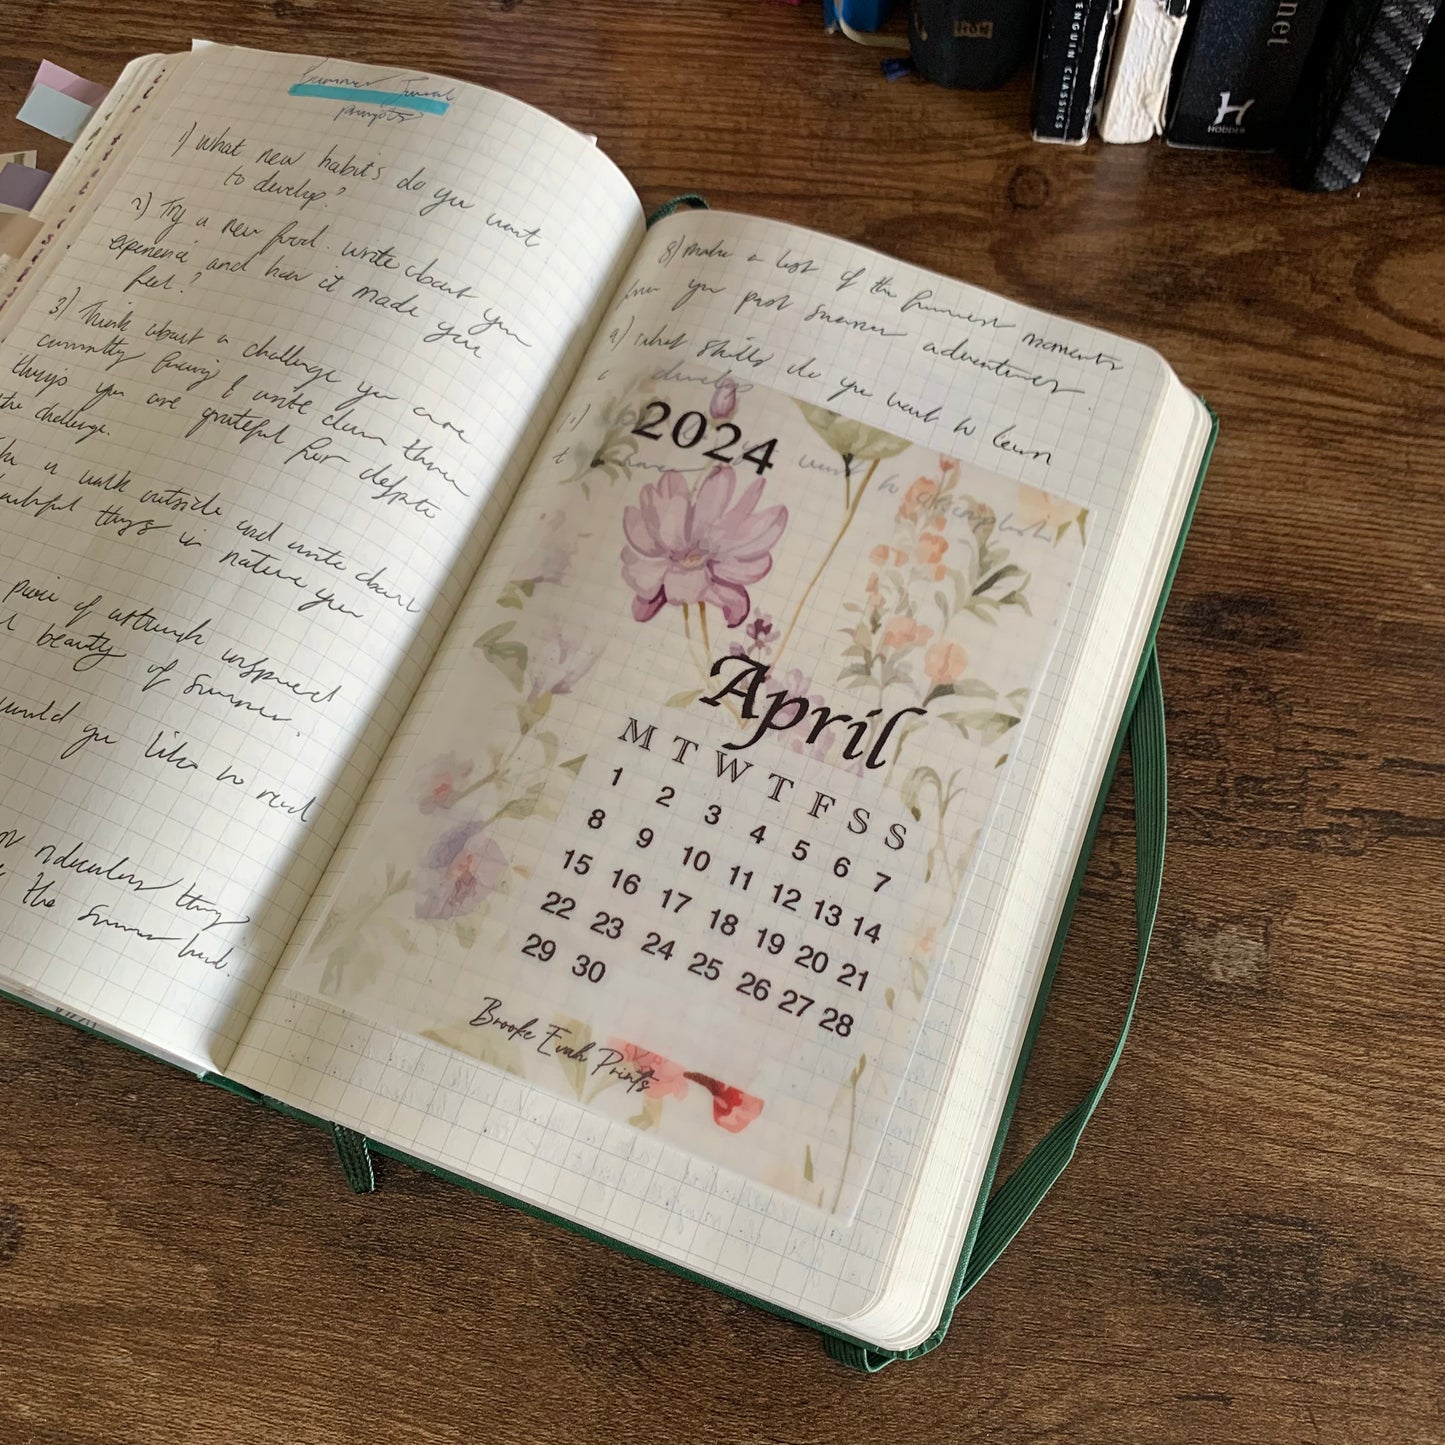 Summer Journal
prompts
1) What new habits do you want
to develop?
2) Try a new food. write about your
experience and how it made you
feel.?
3) Think about a challenge you are
currently facing & write down three
things you are grateful for despite
the challenge.
a walk outside and write about
things in nature you
piece of artwork inspired
beauty of summer.
would you like to read
ridiculous things
the summer
8) make a list of the funniest moments
from your past summer adventures.
9) what skills do you want to learn
develop
want to accomplish
2024
April
M T W T F S S
1 2 3 4 5 6 7
8 9 10 11 12 13 14
15 16 17 18 19 20 21
22 23 24 25 26 27 28
29 30
Brooke Evah Prints
PENGUIN CLASSICS
HODDER
net